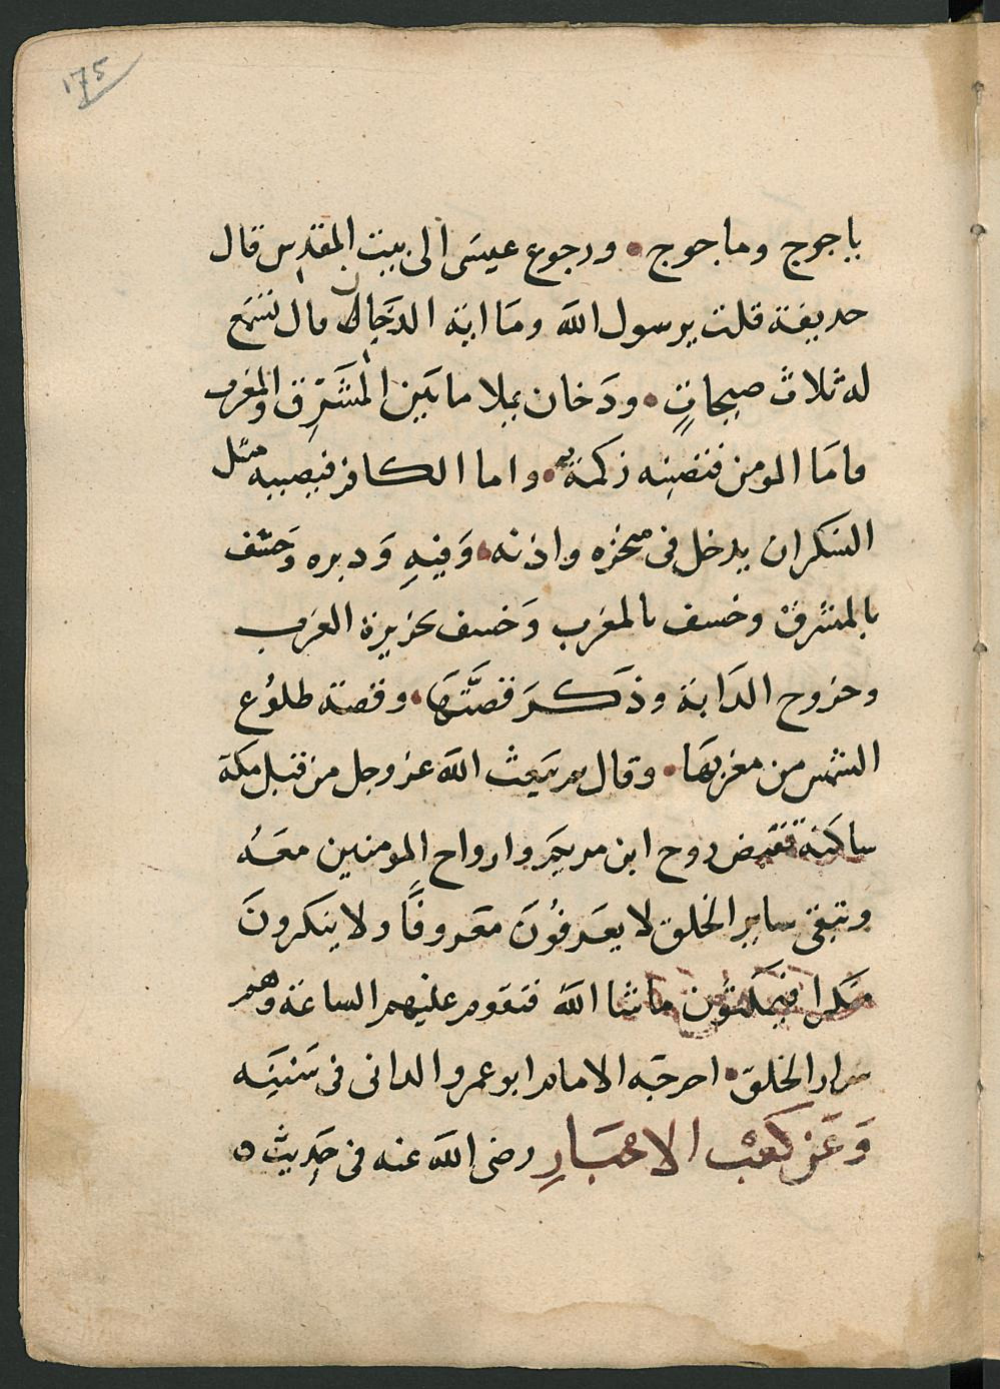 ١٧٥
ياجوج وماجوج ورجوع عيسَى الى بيت المقدس قال
حذيفة قلت يرسول الله ومَا اية الدجَال قال تسمع
له ثلاث صيحاتٍ ودَخان يملا ما بَين المشَرِق والمغرب
فامَا المومن فتصيبه زكمة واما الكافر فيصيبه مثل
السَكران يدخل فى منخره واذنه وَفيهِ وَدبره وَخسف
بالمشرقْ وخسف بالمغرب وَخسف بجزيرة العَرب
وخروج الدَابة وذكَرَ قصَّتهَا وقصة طلوُع
الشمس من مغربهَا وقال ثم يَبعث الله عز وجل من قبل مكة
ساكنة فتقبض روح ابن مريَم وارواح المومنين معَهُ
وَتبقى ساير الخلق لا يعَرفوُنَ معَروفًا ولا ينكرونَ
منكرا فيمكثوُن ما شا الله فتقوم عليهم الساعَة وهم
شرار الخلق اخرجَه الامام ابو عمرو الدانى فى سُننِه
وَعَن كَعْب الاحبَارِ رضى الله عنه فى حَدِيثْ ه